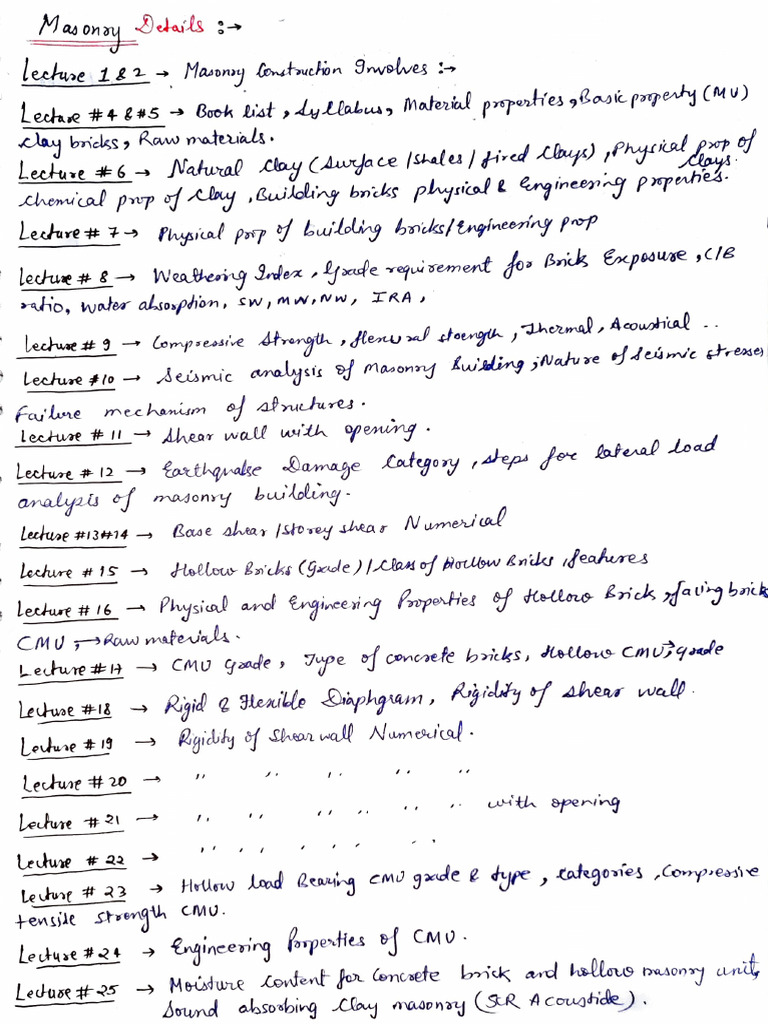 Masonry Details :→
Lecture 1 & 2 → Masonry Construction Involves :→
Lecture #4 & #5 → Book list, Syllabus, Material properties, Basic property (MU)
clay bricks, Raw materials.
Lecture #6 → Natural Clay (Surface / Shales / fired Clays), Physical prop of
clays.
chemical prop of Clay, Building bricks physical & Engineering properties.
Lecture #7 → Physical prop of building bricks/Engineering prop
Lecture #8 → Weathering Index, Grade requirement for Brick Exposure, C/B
ratio, water absorption, SW, MW, NW, IRA,
Lecture #9 → Compressive Strength, flexural strength, Thermal, Acoustical ..
Lecture #10 → Seismic analysis of Masonry Building, Nature of Seismic stresses
Failure mechanism of structures.
Lecture #11 → Shear wall with opening.
Lecture #12 → Earthquake Damage Category, steps for lateral load
analysis of masonry building.
Lecture #13#14 → Base shear/Storey shear Numerical
Lecture #15 → Hollow Bricks (Grade) / Class of Hollow Bricks, features
Lecture #16 → Physical and Engineering Properties of Hollow Brick, facing brick
CMU, → Raw materials.
Lecture #17 → CMU Grade, Type of concrete bricks, Hollow CMU, → grade
Lecture #18 → Rigid & Flexible Diaphgram, Rigidity of shear wall.
Lecture #19 → Rigidity of Shear wall Numerical.
Lecture #20 → " " " " "
Lecture #21 → " " " " " " with opening
Lecture #22 → " " " " " "
Lecture #23 → Hollow load Bearing CMU grade & type, categories, Compressive
tensile strength CMU.
Lecture #24 → Engineering Properties of CMU.
Lecture #25 → Moisture Content for Concrete brick and hollow masonry unit,
Sound absorbing Clay masonry (SCR Acoustide).